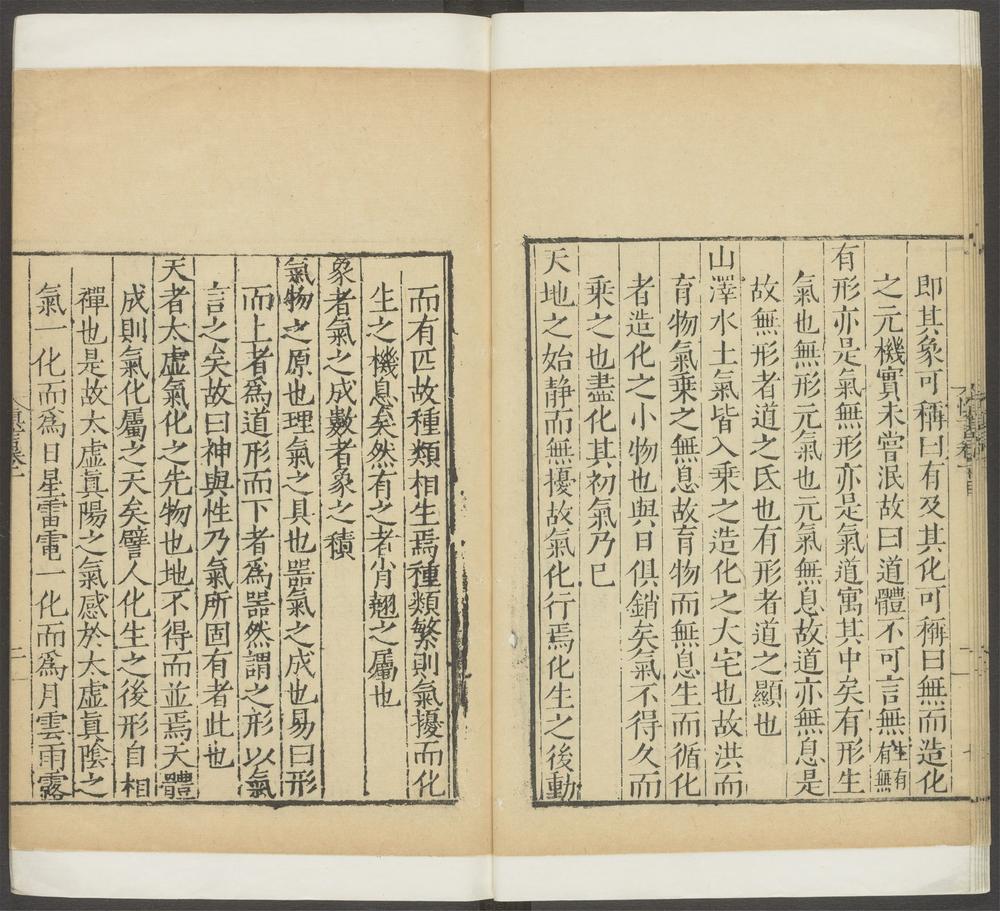 即其象可稱曰有及其化可稱曰無而造化
之元機實未嘗泯故曰道體不可言無生有有無
有形亦是氣無形亦是氣道寓其中矣有形生
氣也無形元氣也元氣無息故道亦無息是
故無形者道之氐也有形者道之顯也
山澤水土氣皆入乘之造化之大宅也故洪而
育物氣乘之無息故育物而無息生而循化
者造化之小物也與日俱銷矣氣不得久而
乘之也盡化其初氣乃已
天地之始静而無擾故氣化行焉化生之後動
而有匹故種類相生焉種類繁則氣擾而化
生之機息矣然有之者肖翹之屬也
象者氣之成數者象之積
氣物之原也理氣之具也噐氣之成也易曰形
而上者爲道形而下者爲噐然謂之形以氣
言之矣故曰神與性乃氣所固有者此也
天者太虛氣化之先物也地不得而並焉天體
成則氣化屬之天矣譬人化生之後形自相
禪也是故太虛眞陽之氣感於太虛眞陰之
氣一化而爲日星雷電一化而爲月雲雨露